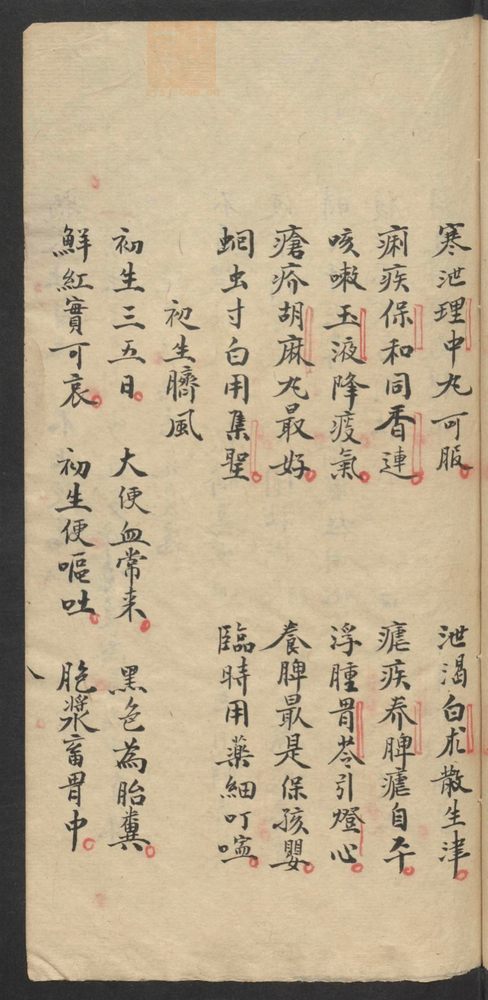 寒泄理中丸可服　泄渴白朮散生津
痢疾保和同香連　瘧疾养脾瘧自平
咳嗽玉液降痰氣　浮腫胃苓引燈心
瘡疥胡麻丸最好　養脾最是保孩嬰
蛔虫寸白用集聖　臨時用藥細叮嚀
初生臍風
初生三五日　大便血常来　黑色為胎糞
鮮紅實可哀　初生便嘔吐　胞漿畜胃中